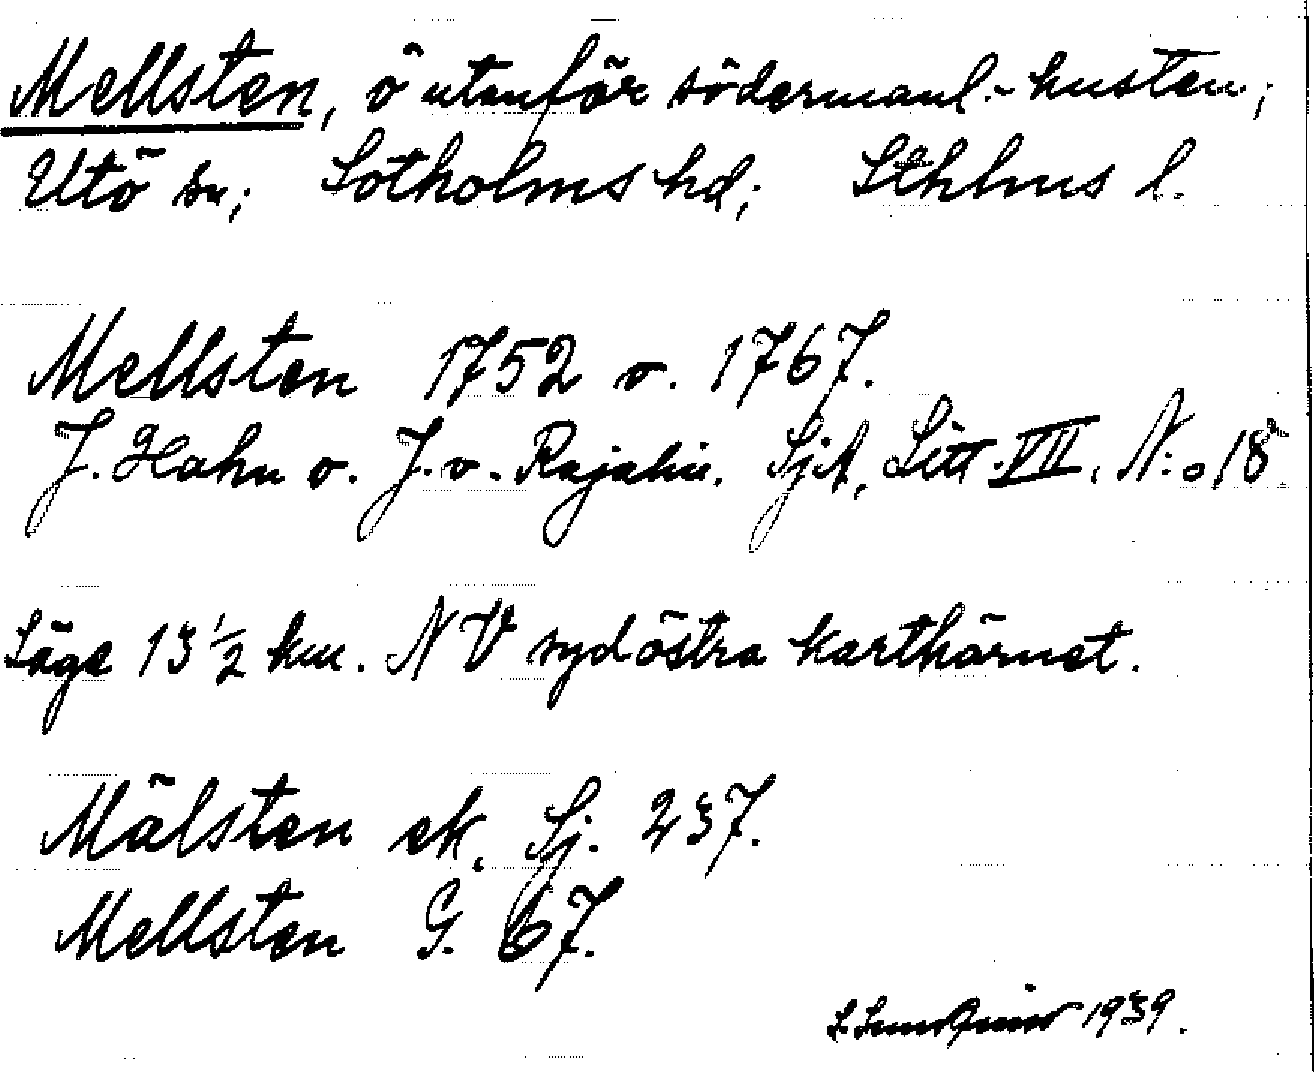 Mellsten, ö utanför södermanl.-kusten;
Utö sn; Sotholms hd; Sthlms l.
Mellsten 1752 o. 1767.
J. Hahn o. J. v. Rajalin. SjA, Litt. VII. N:o 18
Läge 13 1/2 km. NV sydöstra karthörnet.
Mälsten ek. Sj. 237.
Mellsten G. 67.
1939.